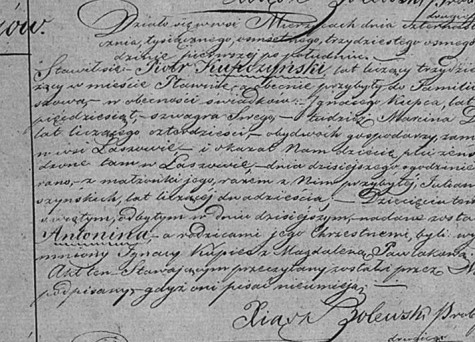 Działo się w wsi Mierzącach dnia czternastego
cznia, tysiącznego, osmsetnego, trzydziestego osmego
dzinie pierwszej po południu.
Stawił się Piotr Kupczyński, lat liczący trzydzie
szący w mieście Stawie obecnie przybyły do Familii
w obecności świadków Ignacego Kupca, lat
pięćdziesiąt, szwagra Swego, tudzież Marcina
lat liczącego czterdzieści, obydwóch gospodarzy zam
w wsi Łaszowie i okazał Nam dziecię płci żeń
dzone tam w Łaszowie, dnia dzisiejszego o godzinie
rano, z małżonki jego, razem z Nim przybyłej, Julian
szyńskich, lat liczącej dwadzieścia, Dziecięciu temu
świętym, odbytym w dniu dzisiejszym, nadane zosta
Antonina, a rodzicami jego Chrzestnemi, byli wy
mieniony Ignacy Kupiec z Magdaleną Pawlakan
Akt ten Stawającym przeczytany został i przez N
podpisany, gdyż oni pisać nieumieją.
Xiądz Bolewski Prob